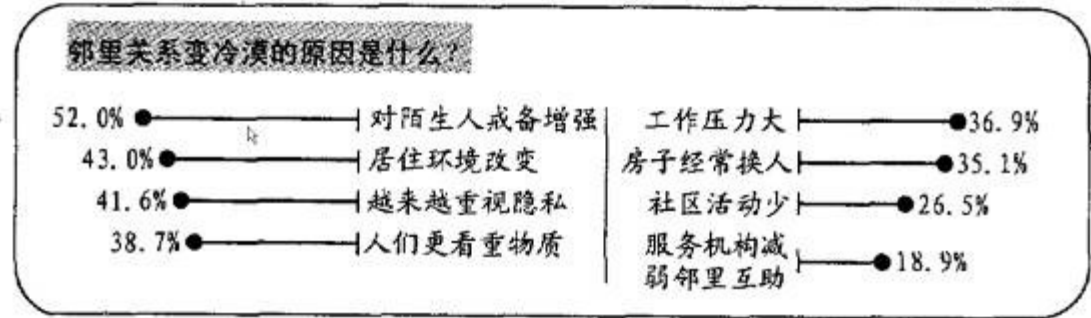 邻里关系变冷漠的原因是什么?
52.0% 对陌生人戒备增强
43.0% 居住环境改变
41.6% 越来越重视隐私
38.7% 人们更看重物质
工作压力大 36.9%
房子经常换人 35.1%
社区活动少 26.5%
服务机构减
弱邻里互助 18.9%